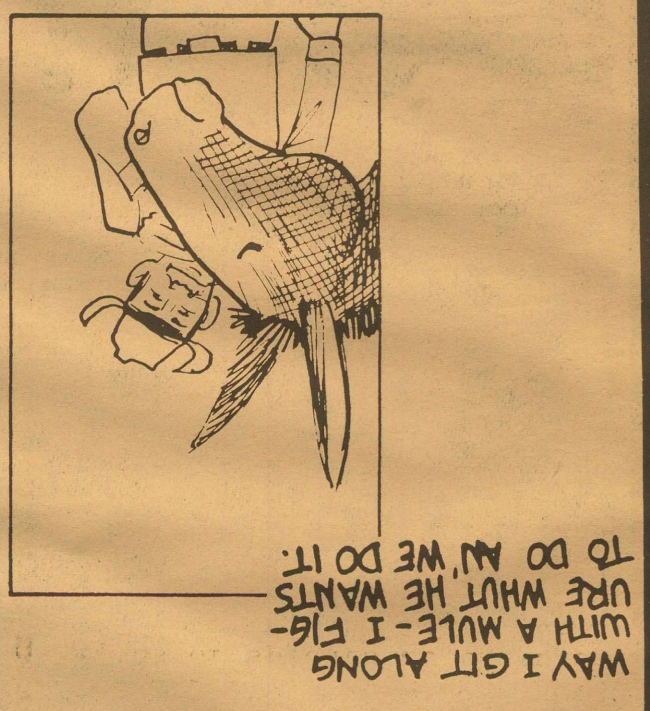 WAY I GIT ALONG
WITH A MULE - I FIG-
URE WHUT HE WANTS
TO DO AN' WE DO IT.